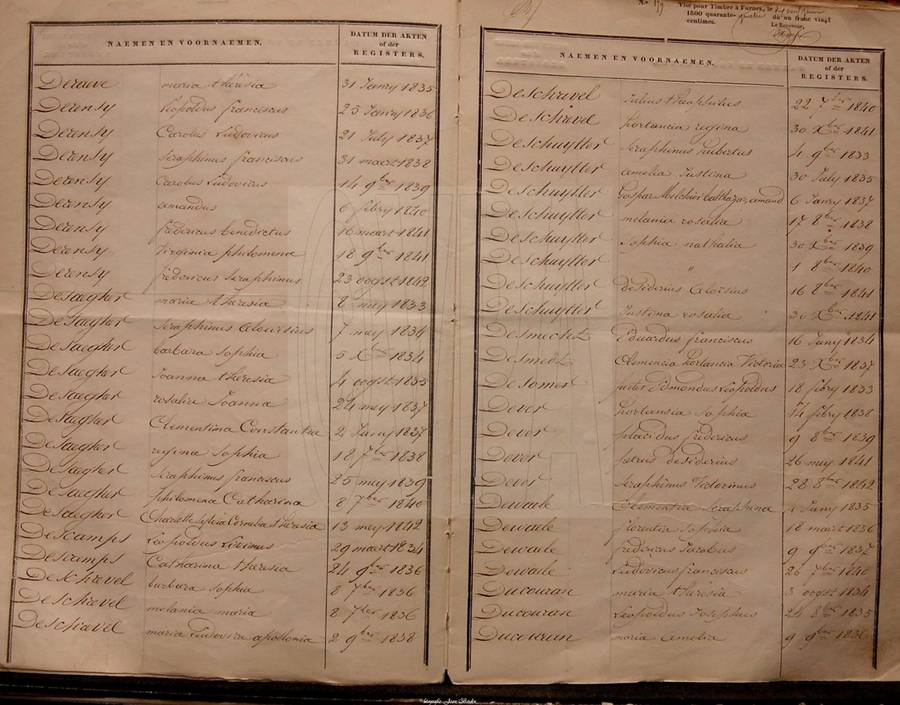 NAEMEN EN VOORNAEMEN.
DATUM DER AKTEN
of der
REGISTERS.
Derauve maria thérèsia 31 Janry 1835
Derensy Leopoldus franciscus 25 Janry 1836
Derensy Carolus Ludovicus 21 July 1837
Derensy Seraphinus franciscus 31 maert 1838
Derensy Carolus Ludovicus 14 9bre 1839
Derensy amandus 6 febry 1840
Derensy fredericus benedictus 16 maert 1841
Derensy Virginia philomena 18 9bre 1841
Derensy fredericus Seraphinus 23 oogst 1842
Desaegher maria theresia 8 mey 1833
Desaegher Seraphinus Aloursius 7 mey 1834
Desaegher barbara Sophia 5 Xbre 1834
Desaegher Joanna theresia 4 oogst 1835
Desaegher rosalia Joanna 24 mey 1837
Desaegher Clementina Constantia 2 1837
Desaegher regina Sophia 18 7bre 1838
Desaegher Seraphinus franciscus 25 mey 1839
Desaegher philomena Catharina 8 7bre 1840
Desaegher Charlotte Cornelia theresia 13 mey 1842
Descamps Leopoldus 29 maert 1834
Descamps Catharina theresia 24 9bre 1836
Deschrevel barbara Sophia 8 7bre 1836
Deschrevel melania maria 8 7bre 1836
Deschrevel maria Ludovica apolionia 2 9bre 1838
No. 119
Vise pour Timbre à Furnes, le
1800 quarante-quatre dû un franc vingt
centimes. Le Receveur,
NAEMEN EN VOORNAEMEN.
DATUM DER AKTEN
of der
REGISTERS.
Deschrevel Julius theophilus 22 7bre 1840
Deschrevel hortancia regina 30 Xbre 1841
Deschuytter Seraphinus hubertus 4 9bre 1833
Deschuytter amelia Justina 30 July 1835
Deschuytter Gaspar Melchior balthazar amand 6 Janry 1837
Deschuytter melania rosalia 17 8bre 1838
Deschuytter Sophia nathalia 30 Xbre 1839
Deschuytter " 1 8bre 1840
Deschuytter desiderius Aloisius 16 8bre 1841
Deschuytter Justina rosalia 30 Xbre 1841
Desmedt Eduardus franciscus 16 Juny 1834
Desmedt Clemencia hortancia Victoria 23 Xbre 1837
Desomer Edmondus Leopoldus 18 febry 1833
Dever hortansia Sophia 14 febry 1838
Dever placidus fredericus 9 8bre 1839
Dever petrus desiderius 26 mey 1841
Dever Seraphinus Victorinus 28 8bre 1842
Dewaele Clementia Seraphina Juny 1835
Dewaele florentia Sophia 18 maert 1836
Dewaele fredericus Jacobus 9 9bre 1837
Dewaele Ludovicus franciscus 26 7bre 1840
Ducouran maria theresia 3 oogst 1834
Ducouran Leopoldus Josephus 24 8bre 1835
Ducouran maria amelia 9 9bre 1836